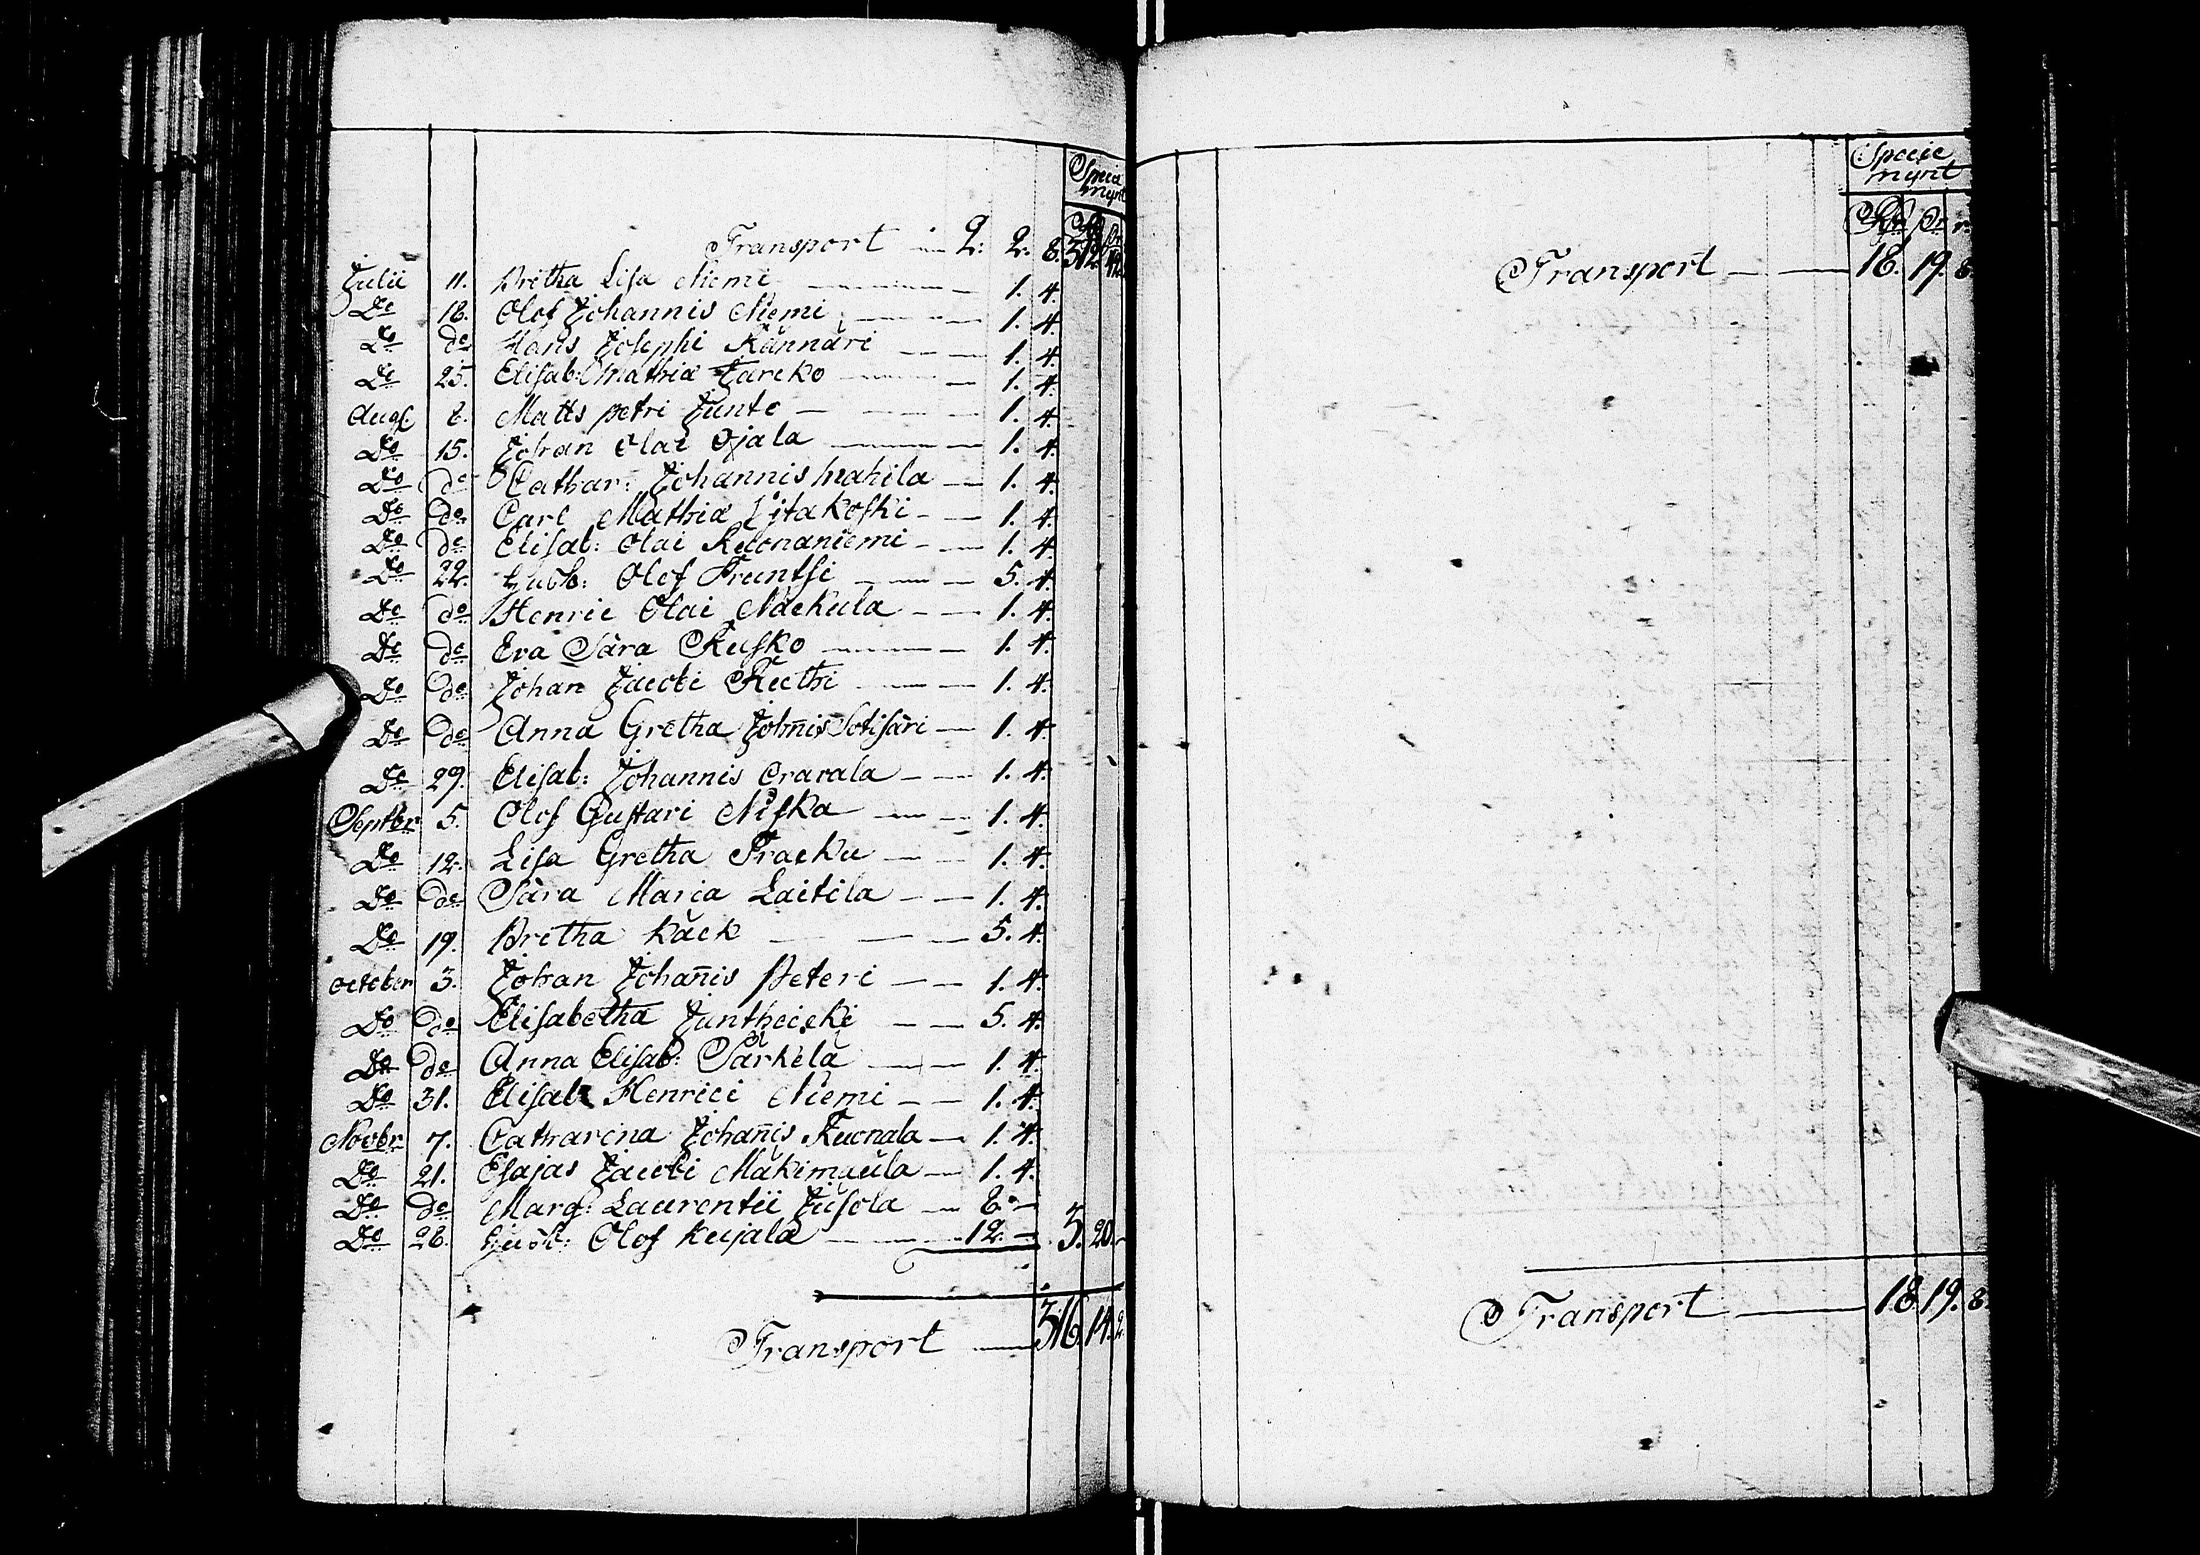 Specie
mynt
Transport — 2. 2. 8. 312.
Julii 11. Bretha Lisa Niemi — 1. 4.
Do 18. Olof Johannis Niemi — 1. 4.
Do do Hans Josephi Kännäri — 1. 4.
Do 25. Elisab: Mathiæ Jarcko — 1. 4.
Augs. 8. Matts petri Junto — 1. 4.
Do 15. Johan Olai Ojala — 1. 4.
Do do Cathar: Johannis Mahila — 1. 4.
Do do Carl Mathiæ — 1. 4.
Do do Elisab: Olai Ruonaniemi — 1. 4.
Do 22. Gubb: Olof Fruntsi — 5. 4.
Do do Henric Olai Nackula — 1. 4.
Do do Eva Sara Rusko — 1. 4.
Do do Johan Jacobi Ruthi — 1. 4.
Do do Anna Gretha Johñis Sotisari — 1. 4.
Do 29. Elisab: Johannis Oravala — 1. 4.
Septbr 5. Olof Gustavi Niska — 1. 4.
Do 12. Lisa Gretha Fracku — 1. 4.
Do do Sara Maria Laitila — 1. 4.
Do 19. Bretha Käck — 5. 4.
October 3. Johan Johañis Peteri — 1. 4.
Do do Elisabetha — 5. 4.
Do do Anna Elisab: Särkelä — 1. 4.
Do 31. Elisab: Henrici Niemi — 1. 4.
Novbr 7. Catharina Johañis Kuonala — 1. 4.
Do 21. Esajas Jacobi Mäkimaula — 1. 4.
Do do Marg: Laurentii Jusola — 8. —
Do 28. Gubb: Olof Kujala — 12. — 3. 20. —
Transport — 316. 14. 2.
Specie
mynt
Transport — 18. 19. 8.
Transport — 18. 19. 8.